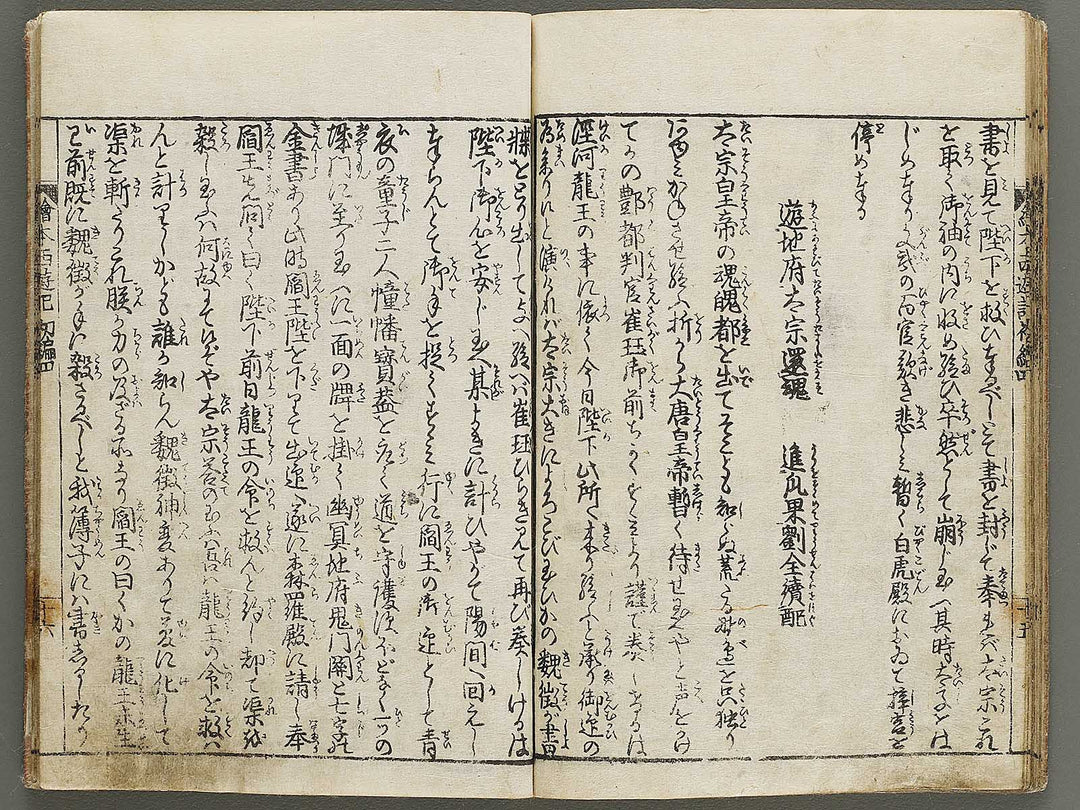 書を見て陛下を救ひ奉るべしとて書を封じて奉れば太宗これ
を取て御袖の内に収め給ひ卒然として崩じ玉ふ其時太子をは
じめ奉り文武の百官歎き悲しみ暫く白虎殿において梓宮を
停め奉る
遊地府太宗還魂　進瓜果劉全續配
太宗皇帝の魂魄都を出てそことも知らぬ荒たる野辺を只独り
させ給ふ折から大唐皇帝暫く待せ玉へやと声をかけ
ての酆都判官崔珏御前ちかくすゝみより謹で奏しけるは
涇河龍王の事に依て今日陛下此所へ来り給ふと承り御迎の
為参りたりと演ければ太宗大きによろこび玉ひかの魏徴が書
牘をとり出して与へ給へば崔珏ひらき見て再び奏しけるは
陛下御心を安じ玉へ某よきに計ひやがて陽間へ回し
奉らんとて御手を捉てすゝみ行に閻王の御迎として青
衣の童子二人幢幡寶蓋を な て道を守護 ほどなく一つの
城門に至り玉へば一面の牌を掛て幽冥地府鬼門關と七字の
金書あり此時閻王陛を下りて出迎へ遂に森羅殿に請し奉
閻王先問て曰く陛下前日龍王の命を救んと約し却て渠を
殺し玉ふは何故にてはべるぞや太宗答の玉ふ 龍王の命を救は
んと計りしかども誰か知らん魏徴神変ありて夢に化して
渠を斬たりこれ朕が力の及ざる所なり閻王の曰くかの龍王未生
已前既に魏徴が手に殺さるべしと我簿子には書 したり
繪本西遊記 初編四
十六